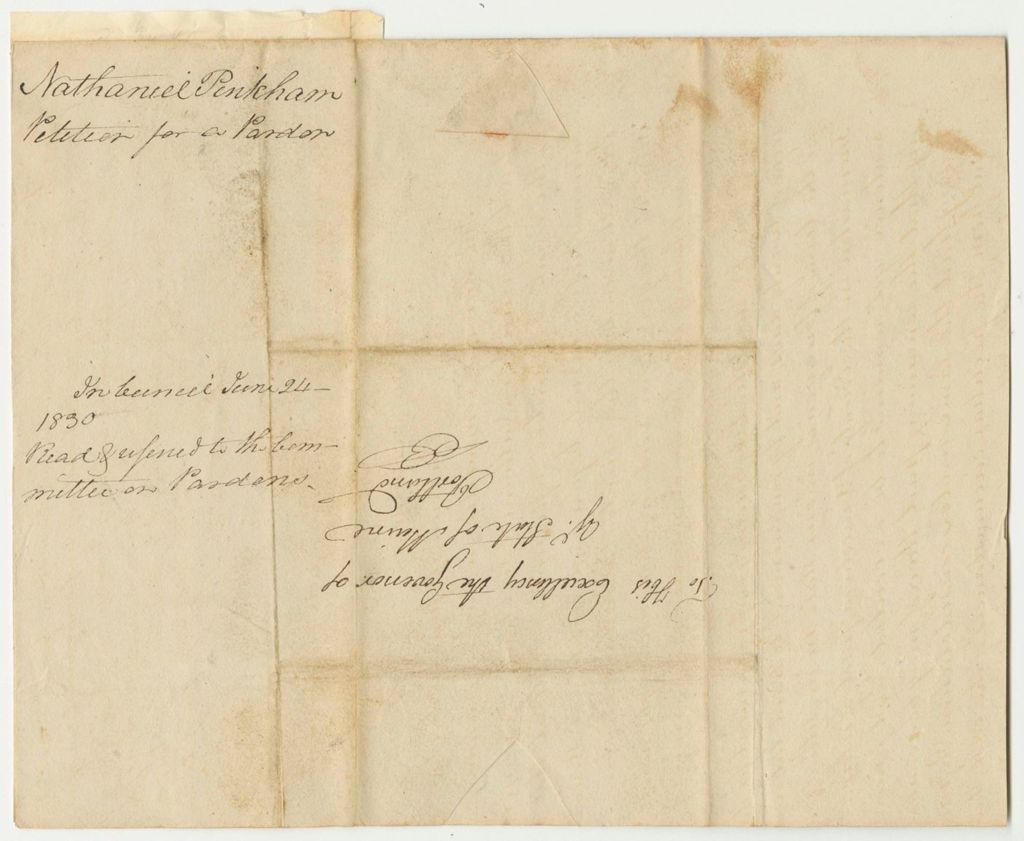 Nathaniel Pinkham
Petition for a Pardon
In Council June 24 –
1830
Read & referred to the Com-
mittee on Pardons –
To His Excellency the Governor of
State of Maine
Portland